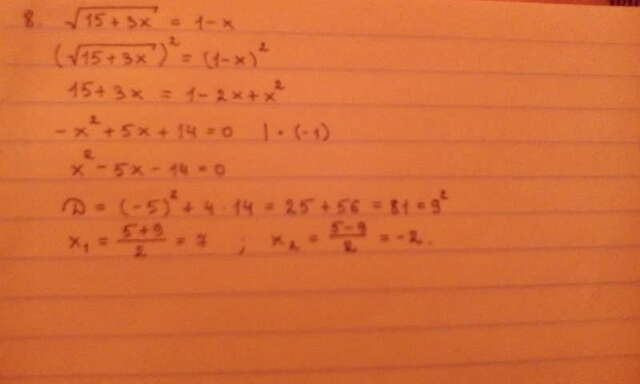 8. √(15+3x) = 1-x
(√(15+3x))² = (1-x)²
15+3x = 1-2x+x²
-x²+5x+14=0 | · (-1)
x²-5x-14=0
D = (-5)²+4·14 = 25+56 = 81=9²
x₁ = (5+9)/2 = 7 ; x₂ = (5-9)/2 = -2.